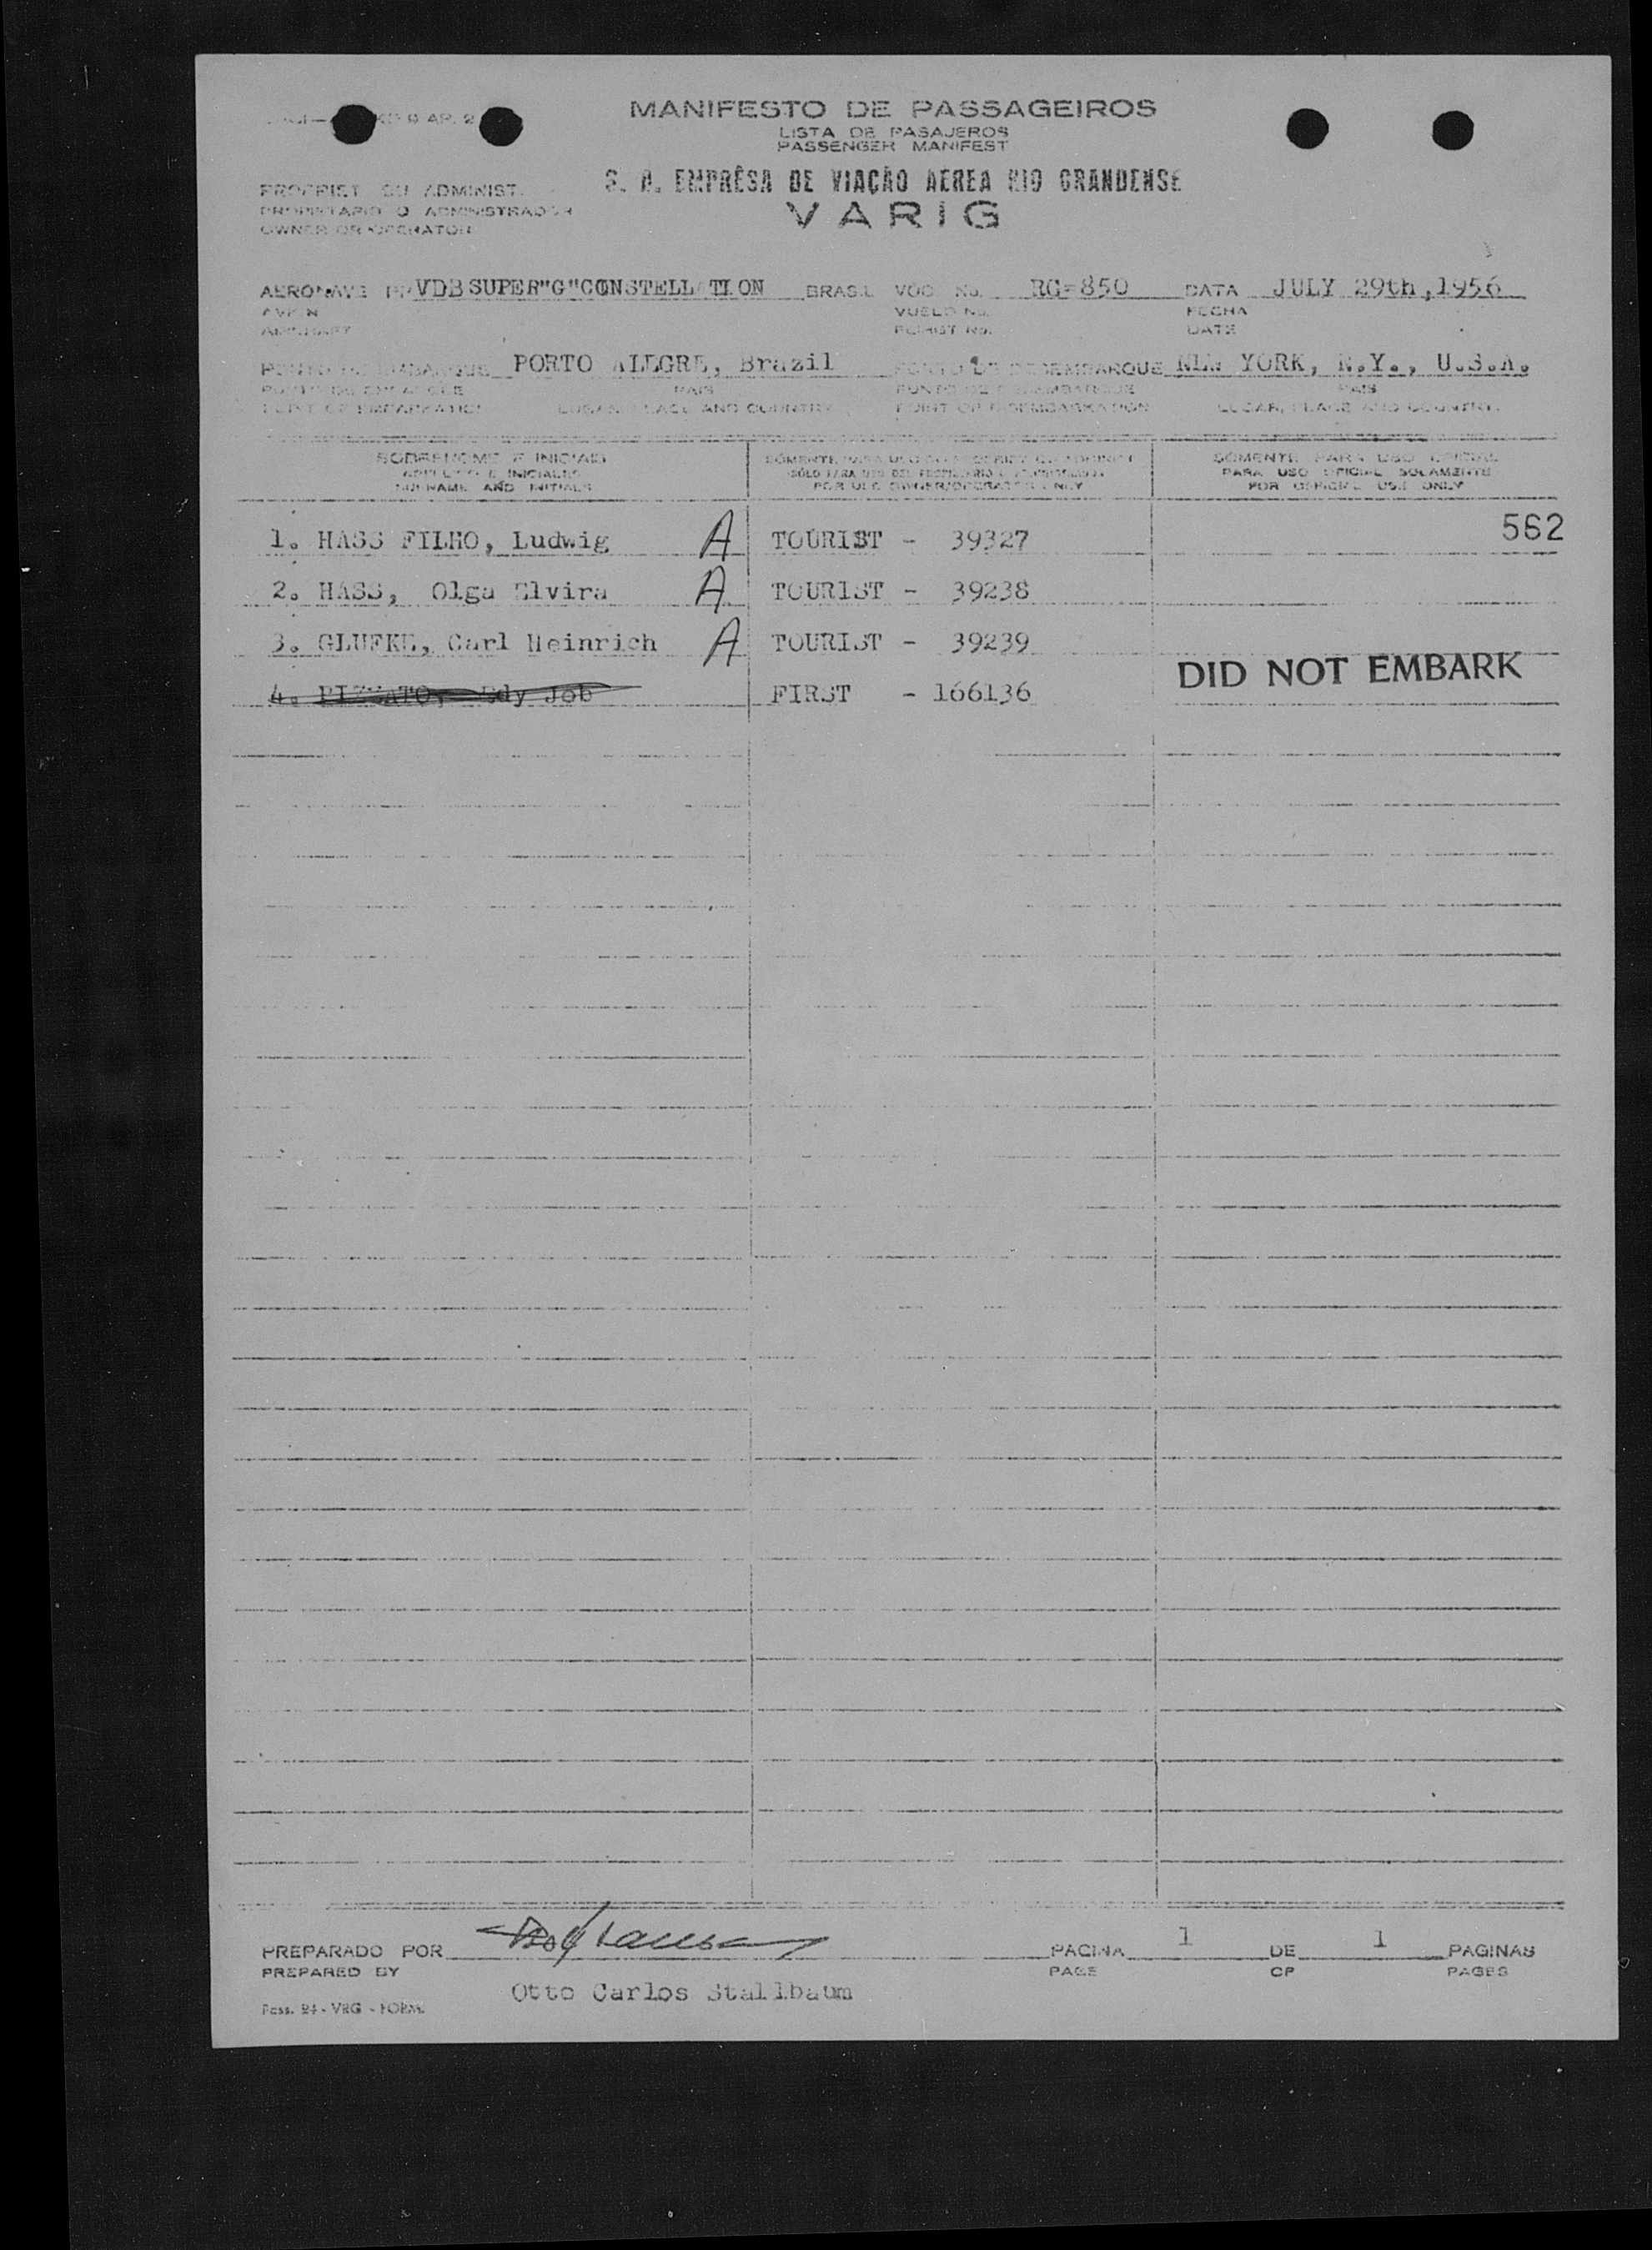 MANIFESTO DE PASSAGEIROS
LISTA DE PASAJEROS
PASSENGER MANIFEST
PROPRIET. OU ADMINIST.
PROPIETARIO O ADMINISTRADOR
OWNER OR OPERATOR
S. A. EMPRÊSA DE VIAÇÃO AEREA RIO GRANDENSE
VARIG
AERONAVE PP VDB SUPER"G"CONSTELLATION BRASIL VOO No. RG-850 DATA JULY 29th,1956
AVION VUELO No. FECHA
AIRCRAFT FLIGHT No. DATE
PONTO DE EMBARQUE PORTO ALEGRE, Brazil PONTO DE DESEMBARQUE NEW YORK, N.Y., U.S.A.
PUNTO DE EMBARQUE PAIS PUNTO DE DESEMBARQUE PAIS
POINT OF EMBARKATION LUGAR, PLACE AND COUNTRY POINT OF DISEMBARKATION LUGAR, PLACE AND COUNTRY
SOBRENOME E INICIAIS
APELLIDO E INICIALES
SURNAME AND INITIALS
FOR USE OWNER/OPERATOR ONLY
SÒMENTE PARA USO OFICIAL
PARA USO OFICIAL SOLAMENTE
FOR OFFICIAL USE ONLY
1. HASS FILHO, Ludwig A TOURIST - 39327 562
2. HASS, Olga Elvira A TOURIST - 39238
3. Carl Heinrich A TOURIST - 39239
DID NOT EMBARK
4. Job FIRST - 166136
PREPARADO POR PAGINA 1 DE 1 PAGINAS
PREPARED BY PAGE OF PAGES
Otto Carlos Stallbaum
Pass. 24 - VRG - FORM.